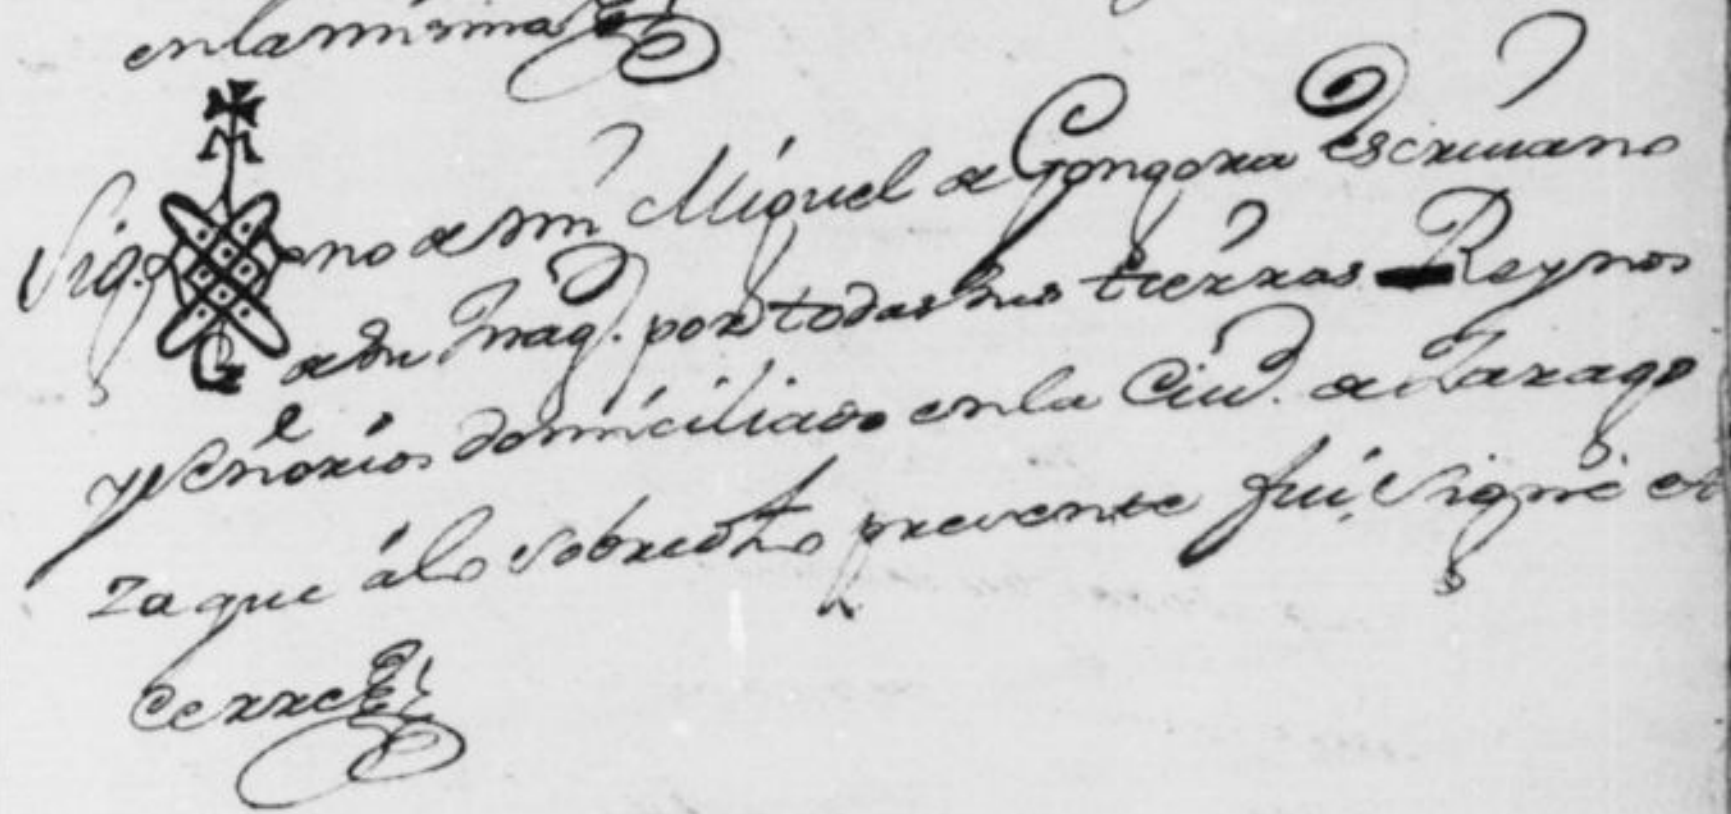 en la misma
Sig no de mi Miguel de Gongora Escriuano
de Su Mag. por todas sus tierras Reynos
y Senorios domiciliado en la Ciud. de Zarago
za que álo sobredho presente fui, signé et
cerré